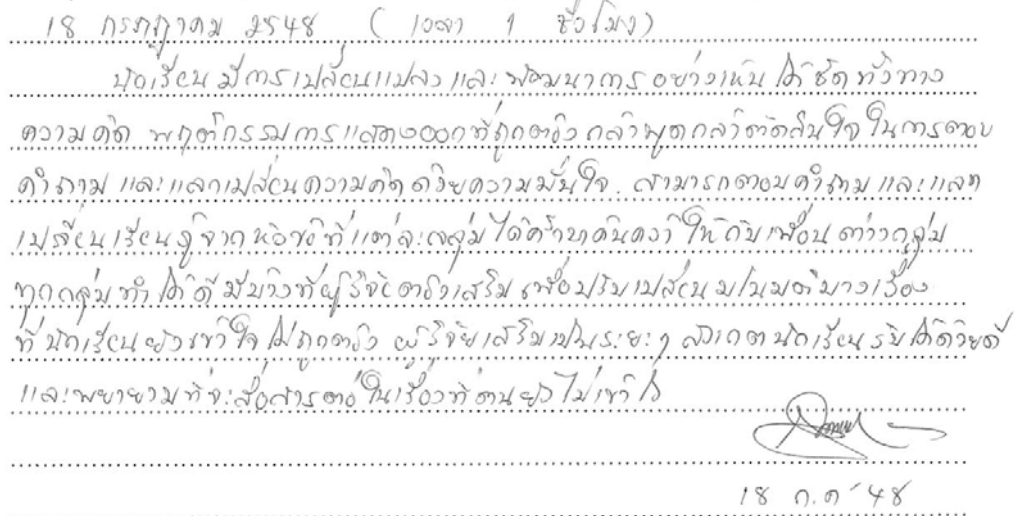 18 กรกฎาคม 2548 ( เวลา 1 ชั่วโมง)
นักเรียนมีการเปลี่ยนแปลง และ พัฒนาการ อย่างเห็นได้ชัด ทั้งทาง
ความคิด พฤติกรรมการแสดงออกที่ถูกต้อง กล้าพูดกล้าตัดสินใจ ในการตอบ
คำถาม และแลกเปลี่ยนความคิดด้วยความมั่นใจ. สามารถตอบคำถาม และแลก
เปลี่ยนเรียนรู้จากหัวข้อที่แต่ละกลุ่มได้ศึกษาค้นคว้า ให้กับเพื่อน ต่างกลุ่ม
ทุกกลุ่มทำได้ดี มีบ้างที่ผู้วิจัยต้องเสริม เพื่อปรับเปลี่ยนมโนมติบางเรื่อง
ที่นักเรียนยังเข้าใจไม่ถูกต้อง ผู้วิจัยเสริมเป็นระยะๆ สังเกตนักเรียนรับได้ด้วยดี
และพยายามที่จะสื่อสารต่อในเรื่องที่ตนยังไม่เข้าใจ
18 ก.ค. 48